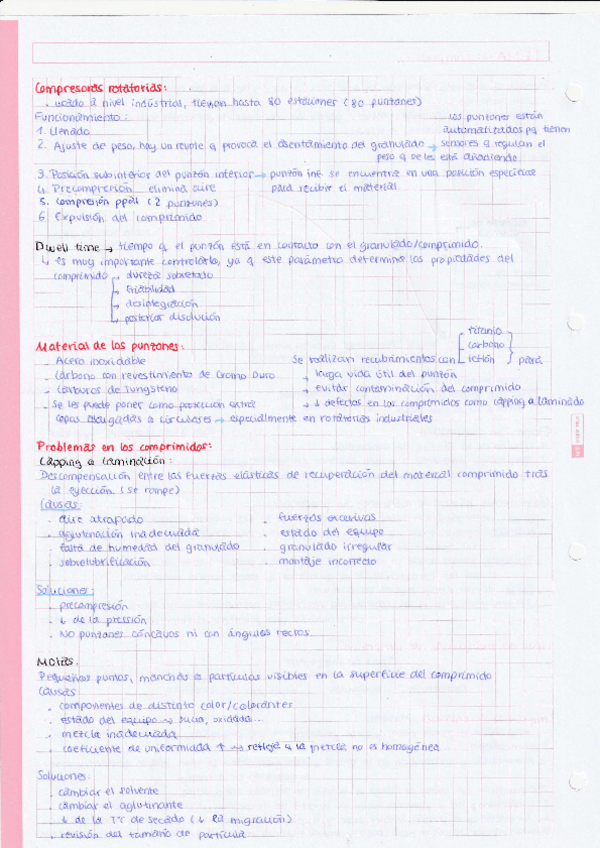 Compresoras rotatorias:
. usado a nivel industrial, tienen hasta 80 estaciones (80 punzones)
Funcionamiento:
1. Llenado
2. Ajuste de peso, hay un reunte q provoca el asentamiento del granulado → los punzones están automatizados pq tienen sensores q regulan el peso q se les está añadiendo
3. Posición sub interior del punzón interior → punzón inf. se encuentra en una posición específica para recibir el material
4. Precompresión elimina aire
5. Compresión ppal (2 punzones)
6. Expulsión del comprimido
Dwell time → tiempo q el punzón está en contacto con el granulado/comprimido.
↳ es muy importante controlarlo, ya q este parámetro determina las propiedades del
comprimido → dureza sobretodo
→ friabilidad
→ desintegración
→ posterior disolución
Material de los punzones:
- Acero inoxidable
- Carbono con revestimiento de Cromo Duro
- Carburos de Tungsteno
- Se les puede poner como protección extra
copas alargadas o circulares → especialmente en rotatorias industriales
Se realizan recubrimientos con [titanio, carbono, teflón] para
→ larga vida útil del punzón
→ evitar contaminación del comprimido
→ ↓ defectos en los comprimidos como capping o laminado
Problemas en los comprimidos:
Capping o laminación:
Descompensación entre las fuerzas elásticas de recuperación del material comprimido tras
la eyección (se rompe)
Causas:
. aire atrapado
. aglutinación inadecuada
. falta de humedad del granulado
. sobrelubrificación
. fuerzas excesivas
. estado del equipo
. granulado irregular
. montaje incorrecto
Soluciones:
. precompresión
. ↓ de la presión
. No punzones cóncavos ni con ángulos rectos
Motas:
Pequeños puntos, manchas o partículas visibles en la superficie del comprimido
Causas
. componentes de distinto color/colorantes
. estado del equipo → sucio, oxidado...
. mezcla inadecuada
. coeficiente de uniformidad ↑ → refleja q la mezcla no es homogénea
Soluciones:
. cambiar el solvente
. cambiar el aglutinante
. ↓ de la Tª de secado (↓ la migración)
. revisión del tamaño de partícula